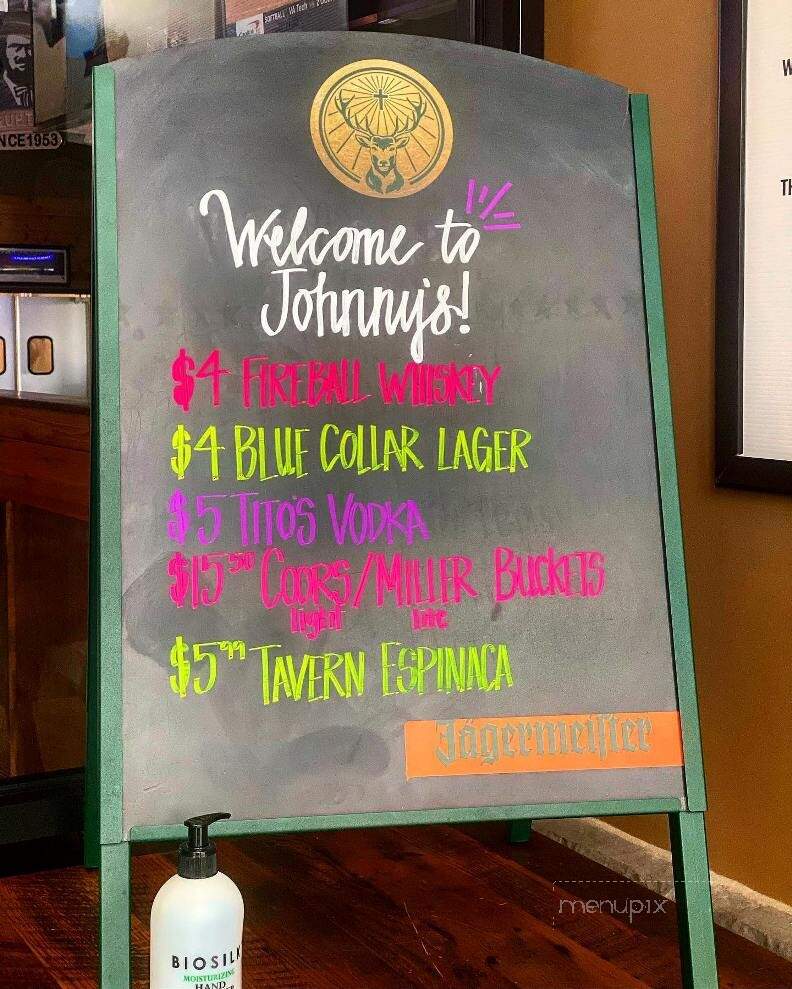 SOFTBALL
NCE1953
W
TH
Welcome to
Johnny's!
$4 FIREBALL WHISKEY
$4 BLUE COLLAR LAGER
$5 TITO'S VODKA
$15.50 COORS/MILLER BUCKETS
light lite
$5.99 TAVERN ESPINACA
Jägermeister
BIOSILK
MOISTURIZING
HAND
menupix